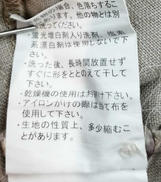 の場合、色落ちするこ
があります。他の物とは別
洗ってください。
・蛍光増白剤入り洗剤、塩素
系漂白剤は使用しないで下
さい。
・洗った後、長時間放置せず
すぐに形をととのえて干して
下さい。
・乾燥機の使用はお避け下さい。
・アイロンかけの際はあて布を
使用して下さい。
・生地の性質上、多少縮むこ
とがあります。